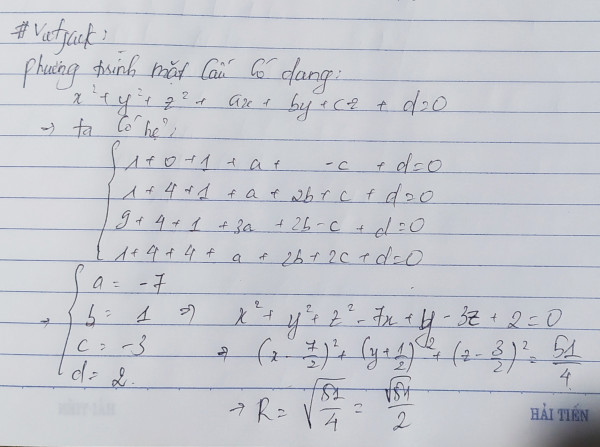 #Vietjack:
phương trình mặt cầu có dạng:
x² + y² + z² + ax + by + cz + d = 0
→ ta có hệ:
1 + 0 + 1 + a + -c + d = 0
1 + 4 + 1 + a + 2b + c + d = 0
9 + 4 + 1 + 3a + 2b - c + d = 0
1 + 4 + 4 + a + 2b + 2c + d = 0
→ a = -7
b = 1 ⇒ x² + y² + z² - 7x + y - 3z + 2 = 0
c = -3 ⇒ (x - 7/2)² + (y + 1/2)² + (z - 3/2)² = 51/4
d = 2.
→ R = √(51/4) = √51/2
HẢI TIẾN